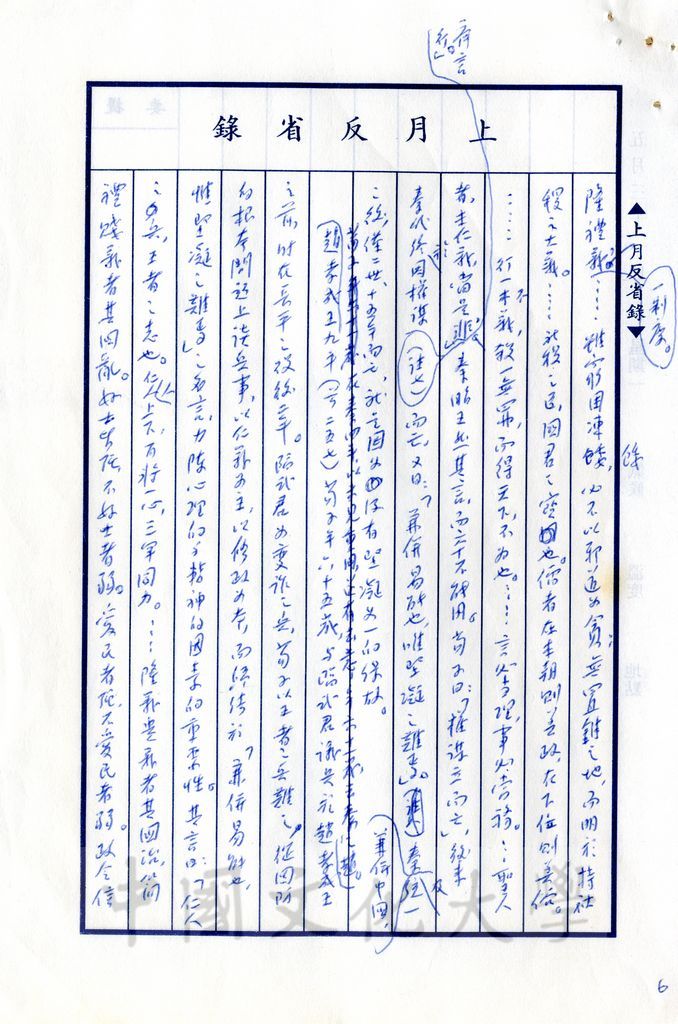 齊言
行」
上月反省錄
▲上月反省錄▼
隆禮義……雖窮困凍餧,必不以邪道為貪;無置錐之地,而明於持社
稷之大義。……社稷之臣,國君之寶也。儒者在本朝則美政,在下位則美俗。
……行一不義,殺一無罪,而得天下,不為也。……言必當理,事必當務。…聖人
者,主仁義,當是非」秦昭王其言,而亦不能用。荀子曰:「權謀立而亡」,後來
秦代終因權謀而亡,又曰:「兼併易能也,唯堅凝之難焉」。秦統一
兼併中國,
之後,僅二世,十五年而亡,就是因為沒有堅凝為一的
趙孝成王九年(二五七)荀子年六十五歲,與臨武君議兵於趙孝成王
之前,時在長平之役後三年。臨武君為變詐之兵,荀子以王者之兵難之,從國防
的根本問題上談兵事,以仁義為主,以修政為本,而歸結於「兼併易能也,
惟堅凝之難焉」之名言,力陳心理的與精神的因素的重要性。其言曰:「仁人
之兵,王者之志也。仁人上下,百將一心,三軍同力。……隆禮貴義者其國治,簡
禮賤義者其國亂。好士者強,不好士者弱。愛民者強,不愛民者弱。政令信
中國文化大學
6